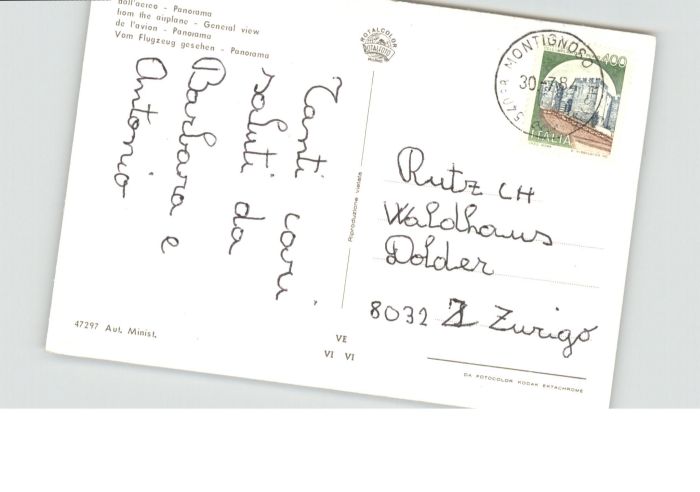 dall'aereo - Panorama
from the airplane - General view
de l'avion - Panorama
Vom Flugzeug gesehen - Panorama
Tanti cari
saluti da
Barbara e
Antonio
47297 Aut. Minist.
VE
VI VI
Riproduzione vietata
ROTALCOLOR
ROTALFOTO
MILANO
54038 MONTIGNOSO
30-7-8
400
ITALIA
Rutz CH
Waldhaus
Dolder
8032 Z Zurigo
DA FOTOCOLOR KODAK EKTACHROME